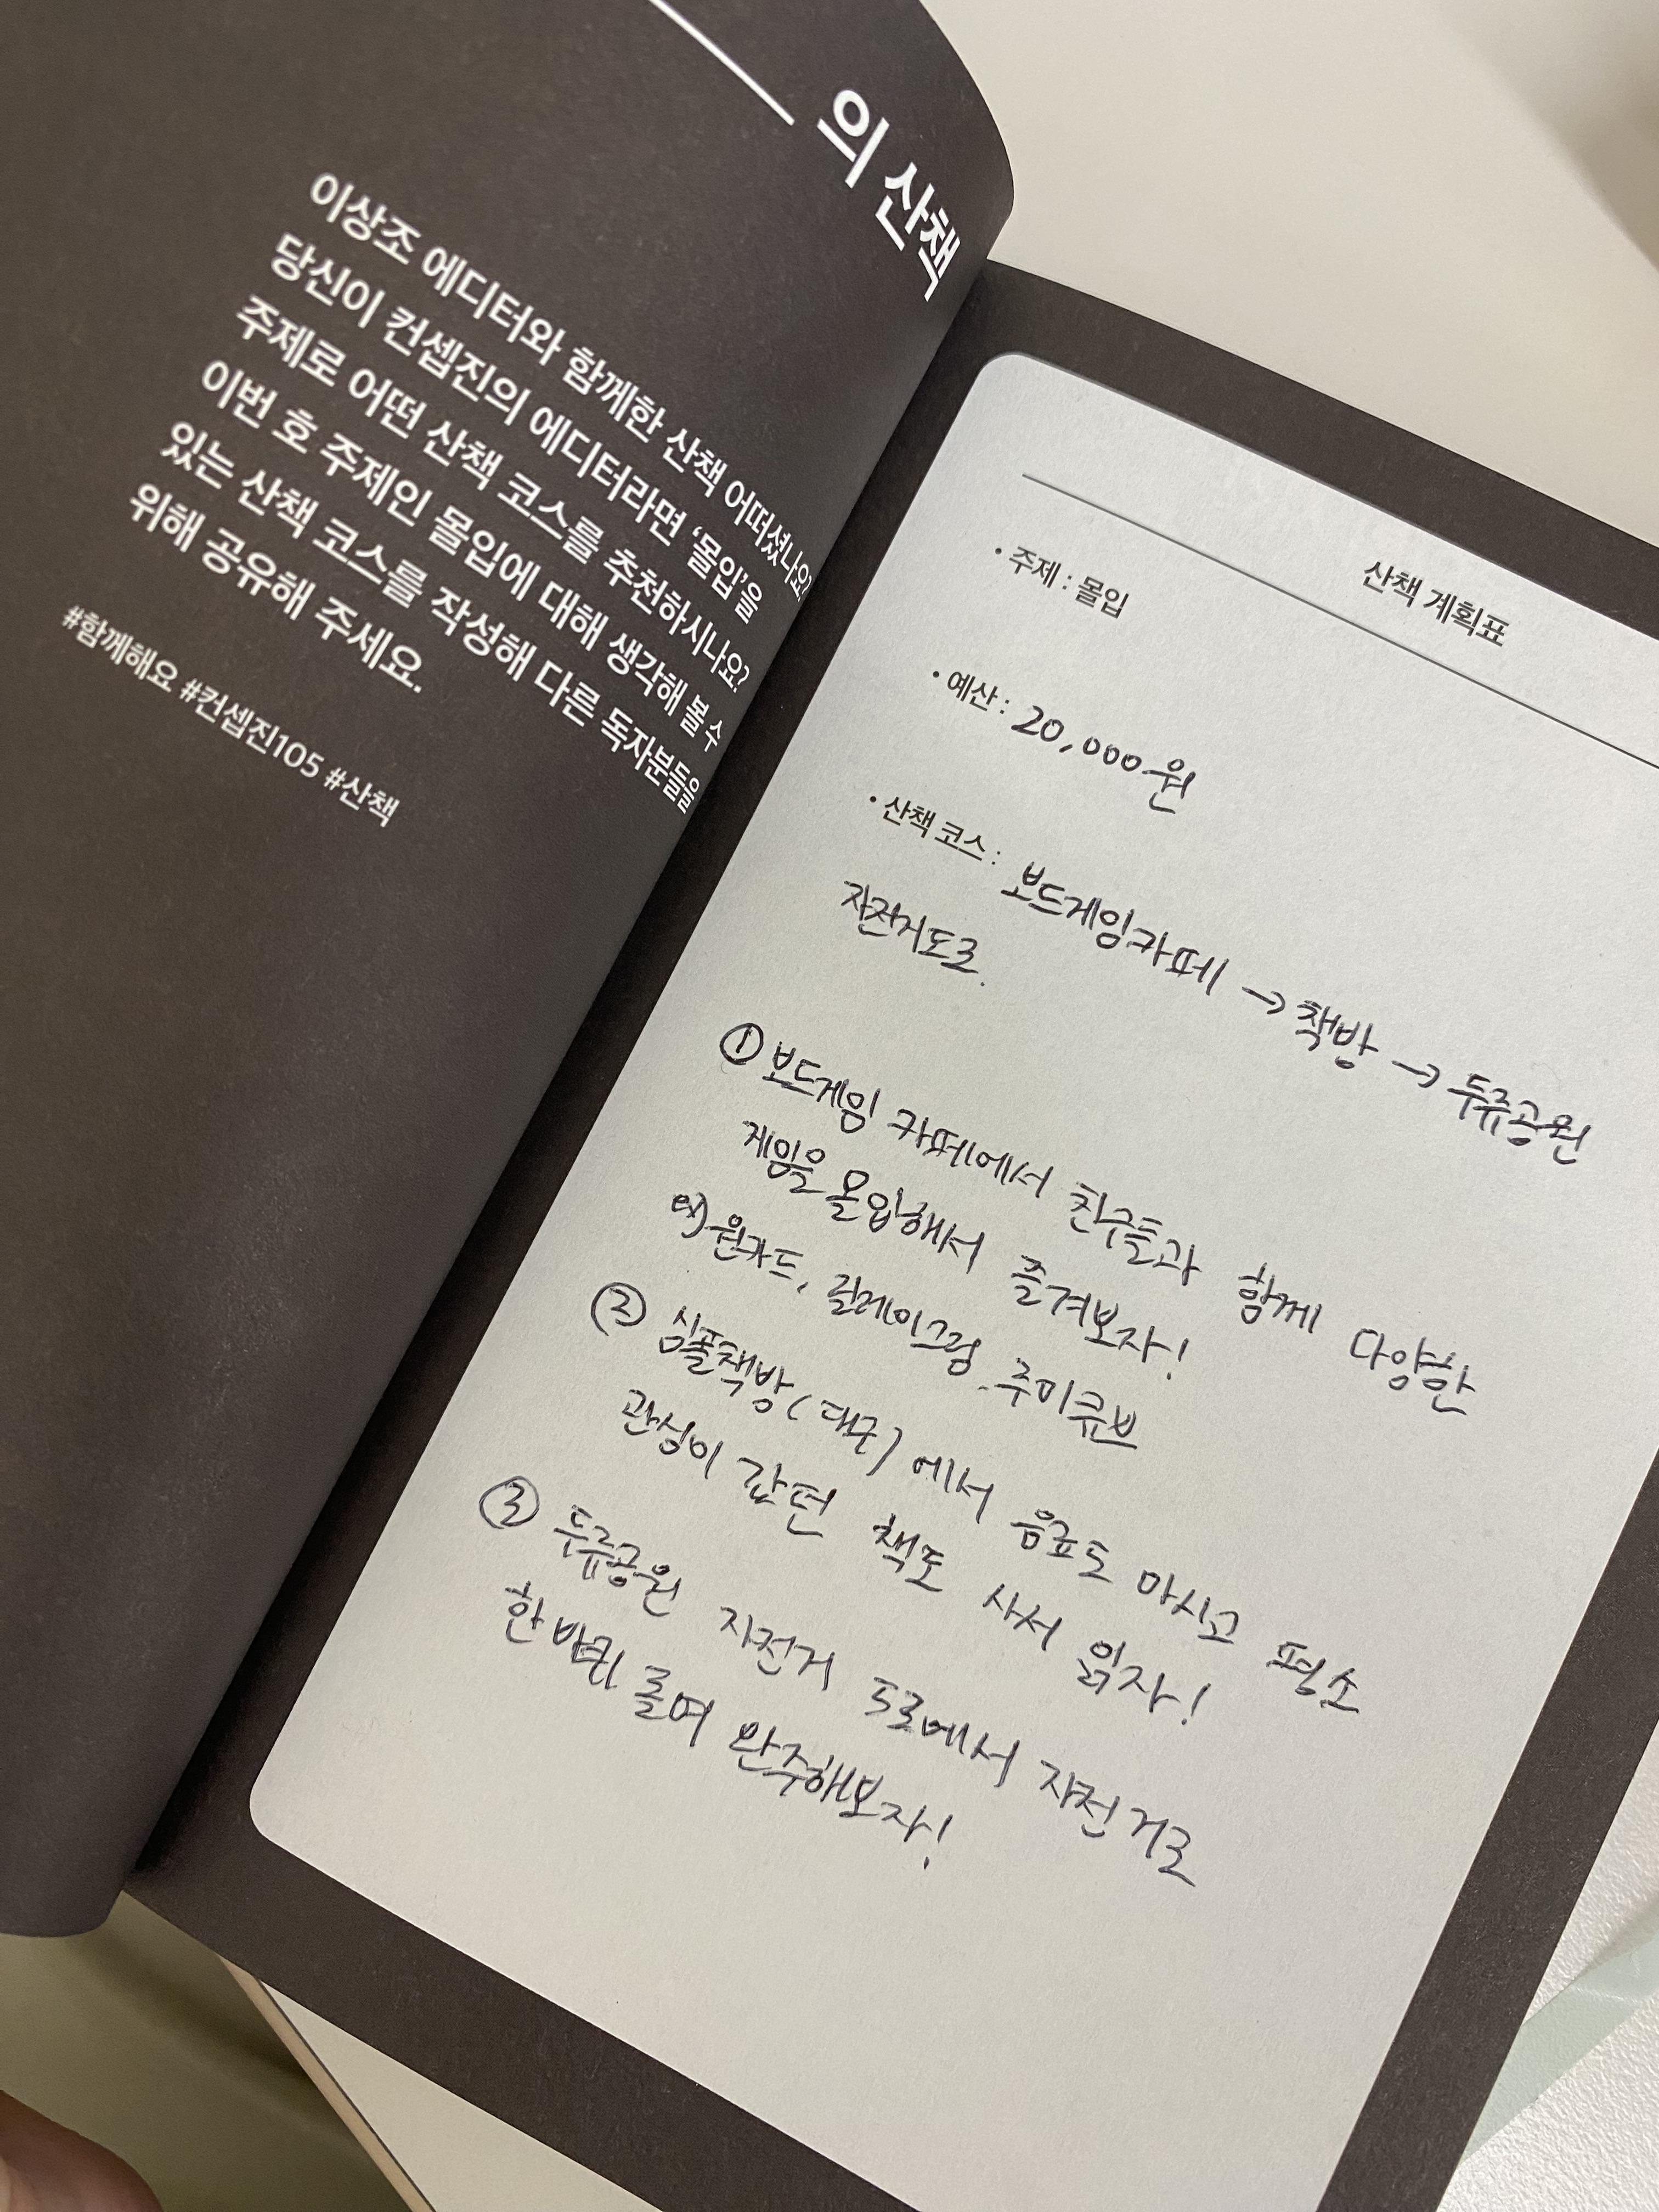 의 산책
이상조 에디터와 함께한 산책 어떠셨나요?
당신이 컨셉진의 에디터라면 ‘몰입’을
주제로 어떤 산책 코스를 추천하시나요?
이번 호 주제인 몰입에 대해 생각해 볼 수
있는 산책 코스를 작성해 다른 독자분들을
위해 공유해 주세요.
#함께해요 #컨셉진105 #산책
산책 계획표
• 주제 : 몰입
• 예산 : 20,000원
• 산책 코스 : 보드게임카페 → 책방 → 두류공원
자전거도로.
① 보드게임 카페에서 친구들과 함께 다양한
게임을 몰입해서 즐겨보자!
ex) 원카드, 릴레이그림, 루미큐브
② 심플책방(대구)에서 음료도 마시고 평소
관심이 갔던 책도 사서 읽자!
③ 두류공원 자전거 도로에서 자전거로
한바퀴 돌며 완주해보자!